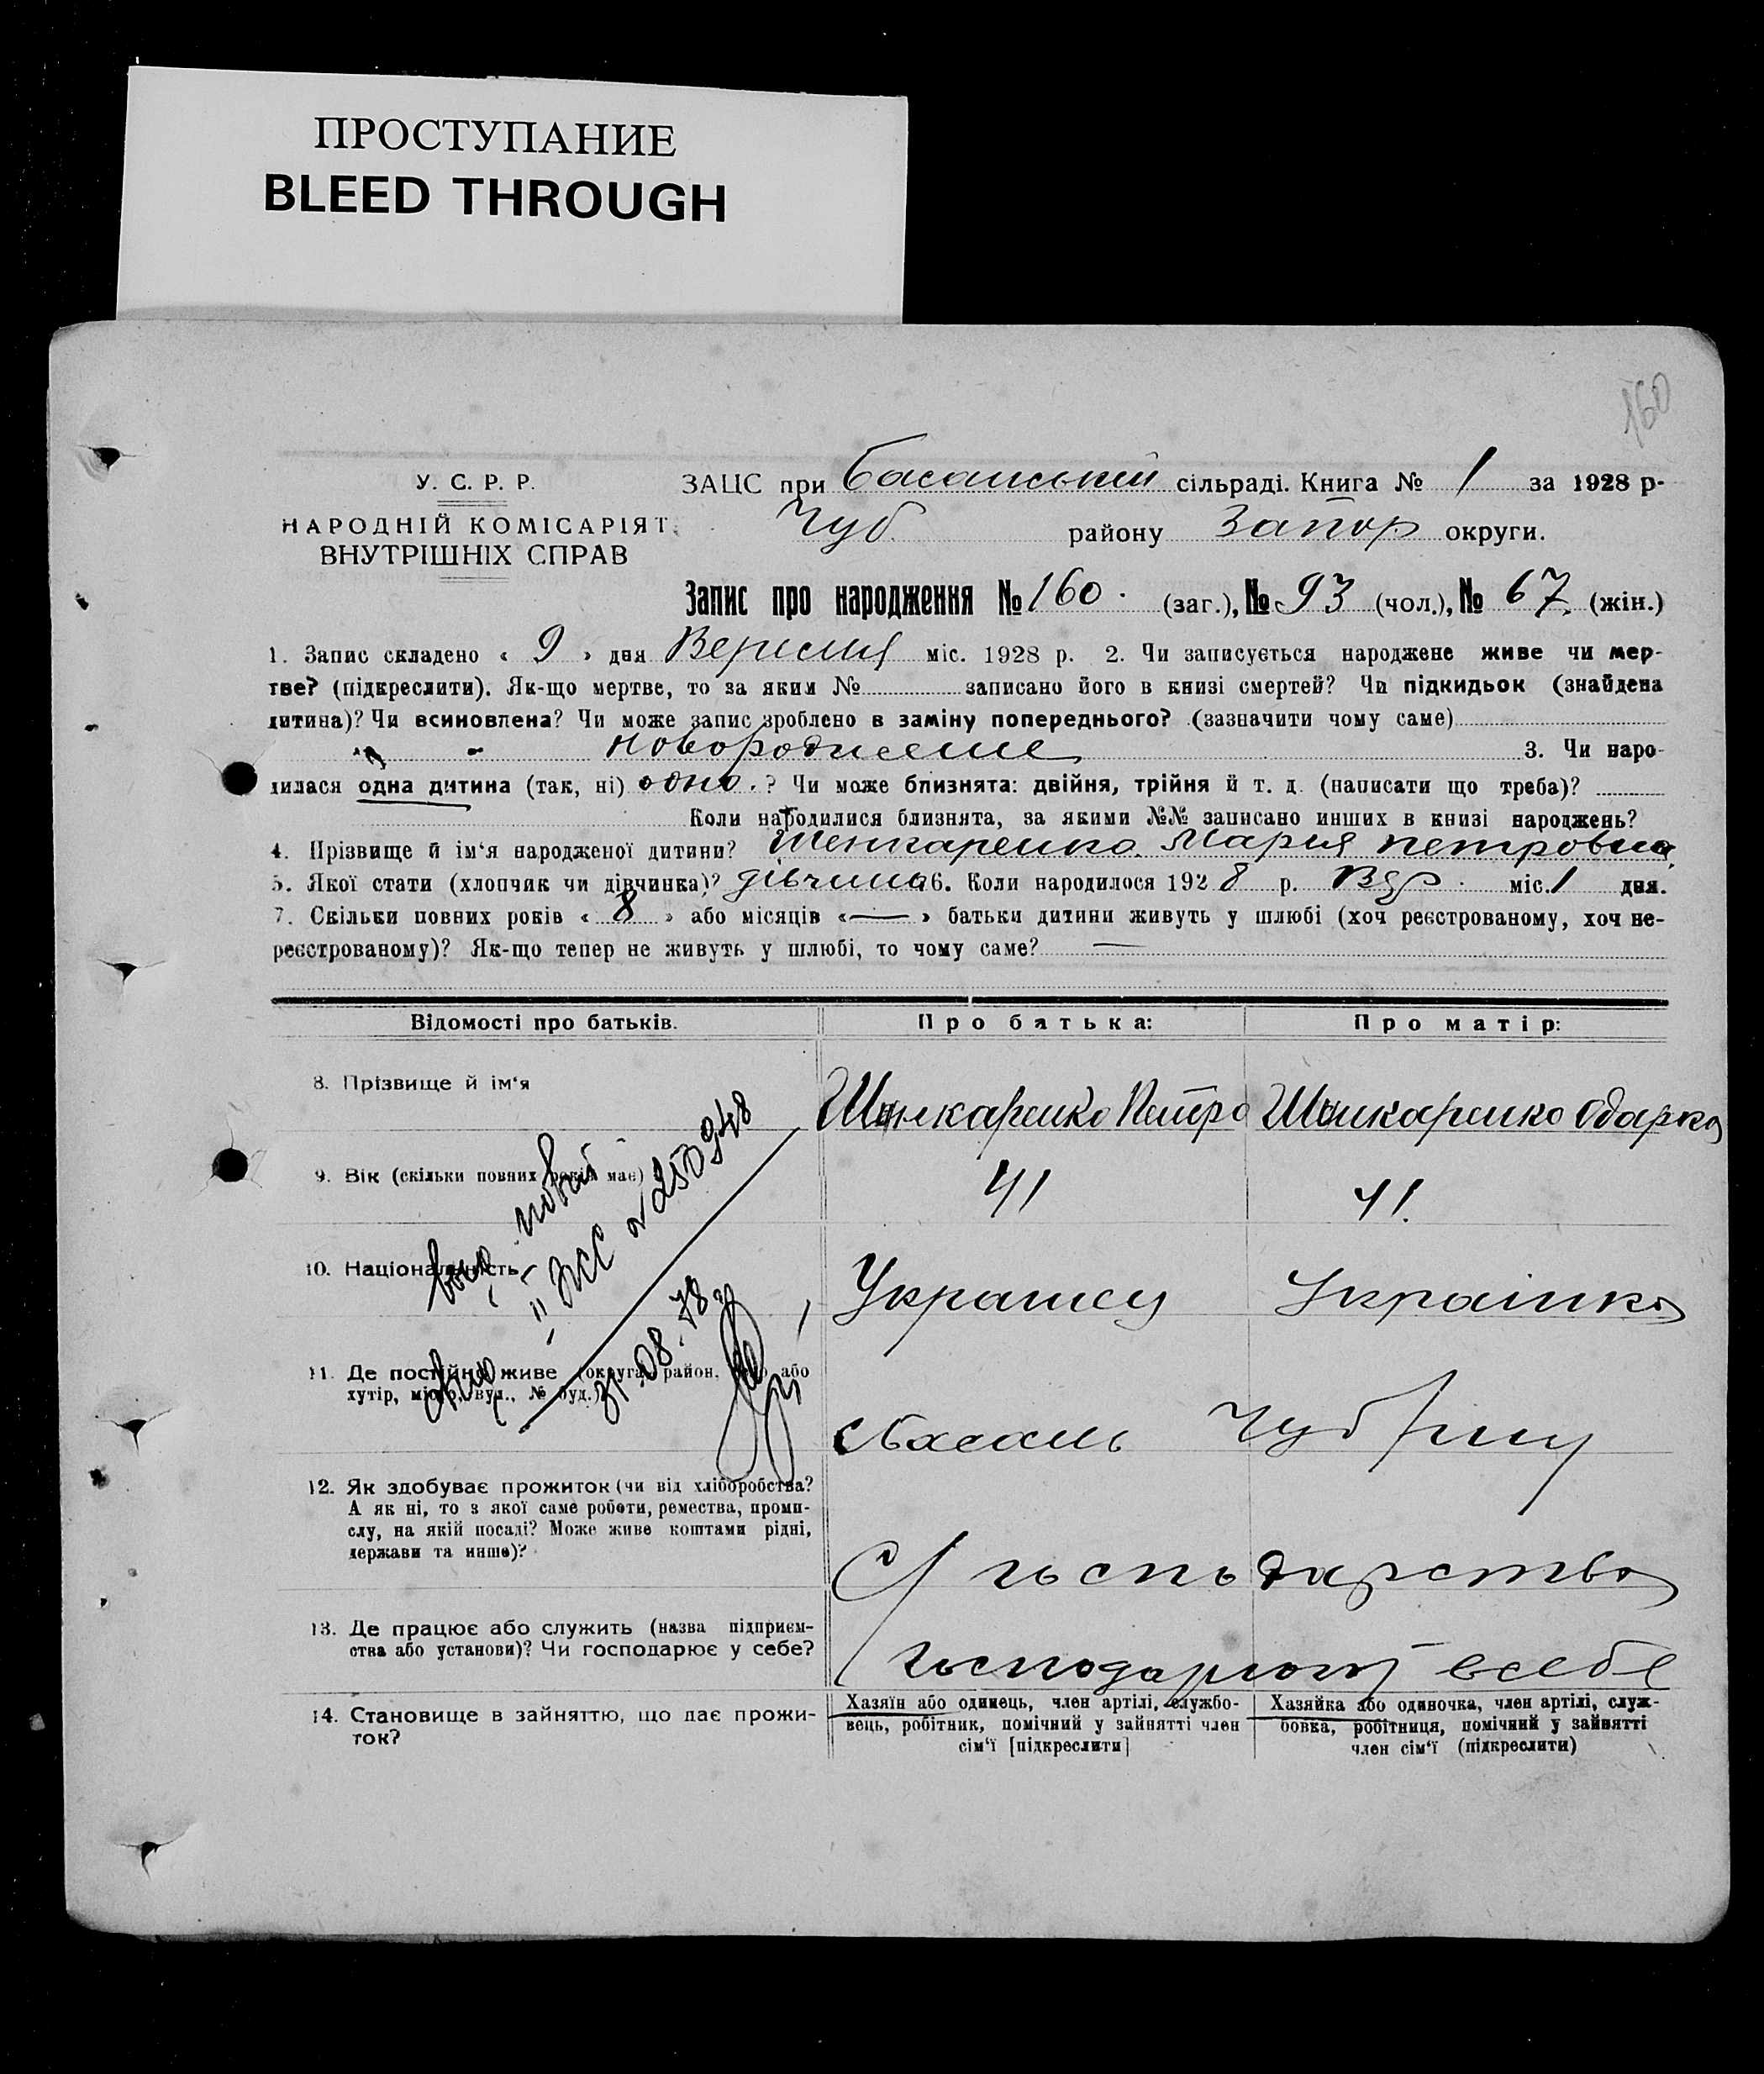 ПРОСТУПАНИЕ
BLEED THROUGH
160
У. С. Р. Р.
НАРОДНІЙ КОМІСАРІЯТ
ВНУТРІШНІХ СПРАВ
ЗАЦС при Басанській сільраді. Книга № 1 за 1928 р.
Чуб. району Запор округи.
Запис про народження № 160. (заг.), № 93 (чол.), № 67. (жін.)
1. Запис складено « 9 » дня Вересня міс. 1928 р. 2. Чи записується народжене живе чи мер-
тве? (підкреслити). Як-що мертве, то за яким № записано його в книзі смертей? Чи підкидьок (знайдена
дитина)? Чи всиновлена? Чи може запис зроблено в заміну попереднього? (зазначити чому саме)
3. Чи наро-
дилася одна дитина (так, ні) одно. ? Чи може близнята: двійня, трійня й т. д. (написати що треба)?
Коли народилися близнята, за якими №№ записано инших в книзі народжень?
4. Прізвище й ім‘я народженої дитини? Шенкаренко Мария Петровна
5. Якої стати (хлопчик чи дівчинка)? дівчина 6. Коли народилося 1928 р. міс. 1 дня.
7. Скільки повних років « 8 » або місяців « — » батьки дитини живуть у шлюбі (хоч реєстрованому, хоч не-
реєстрованому)? Як-що тепер не живуть у шлюбі, то чому саме? —
Відомості про батьків. Про батька: Про матір:
8. Прізвище й ім‘я Шинкаренко Петро Шинкаренко Одарка
9. Вік (скільки повних років має) 41 41.
10. Національність Українец Українка
11. Де постійно живе (округа, район, село або
хутір, місто, вул., № буд.)
с Басань Чуб р-ну
12. Як здобуває прожиток (чи від хліборобства?
А як ні, то з якої саме роботи, ремества, проми-
слу, на якій посаді? Може живе коштами рідні,
держави та инше)?
С/господарства
13. Де працює або служить (назва підприєм-
ства або установи)? Чи господарює у себе?
господарюють в себе
14. Становище в зайняттю, що дає прожи-
ток?
Хазяїн або одинець, член артілі, службо-
вець, робітник, помічний у зайнятті член
сім‘ї [підкреслити]
Хазяйка або одиночка, член артілі, служ-
бовка, робітниця, помічний у зайнятті
член сім‘ї (підкреслити)
№ 250948
31.08.78